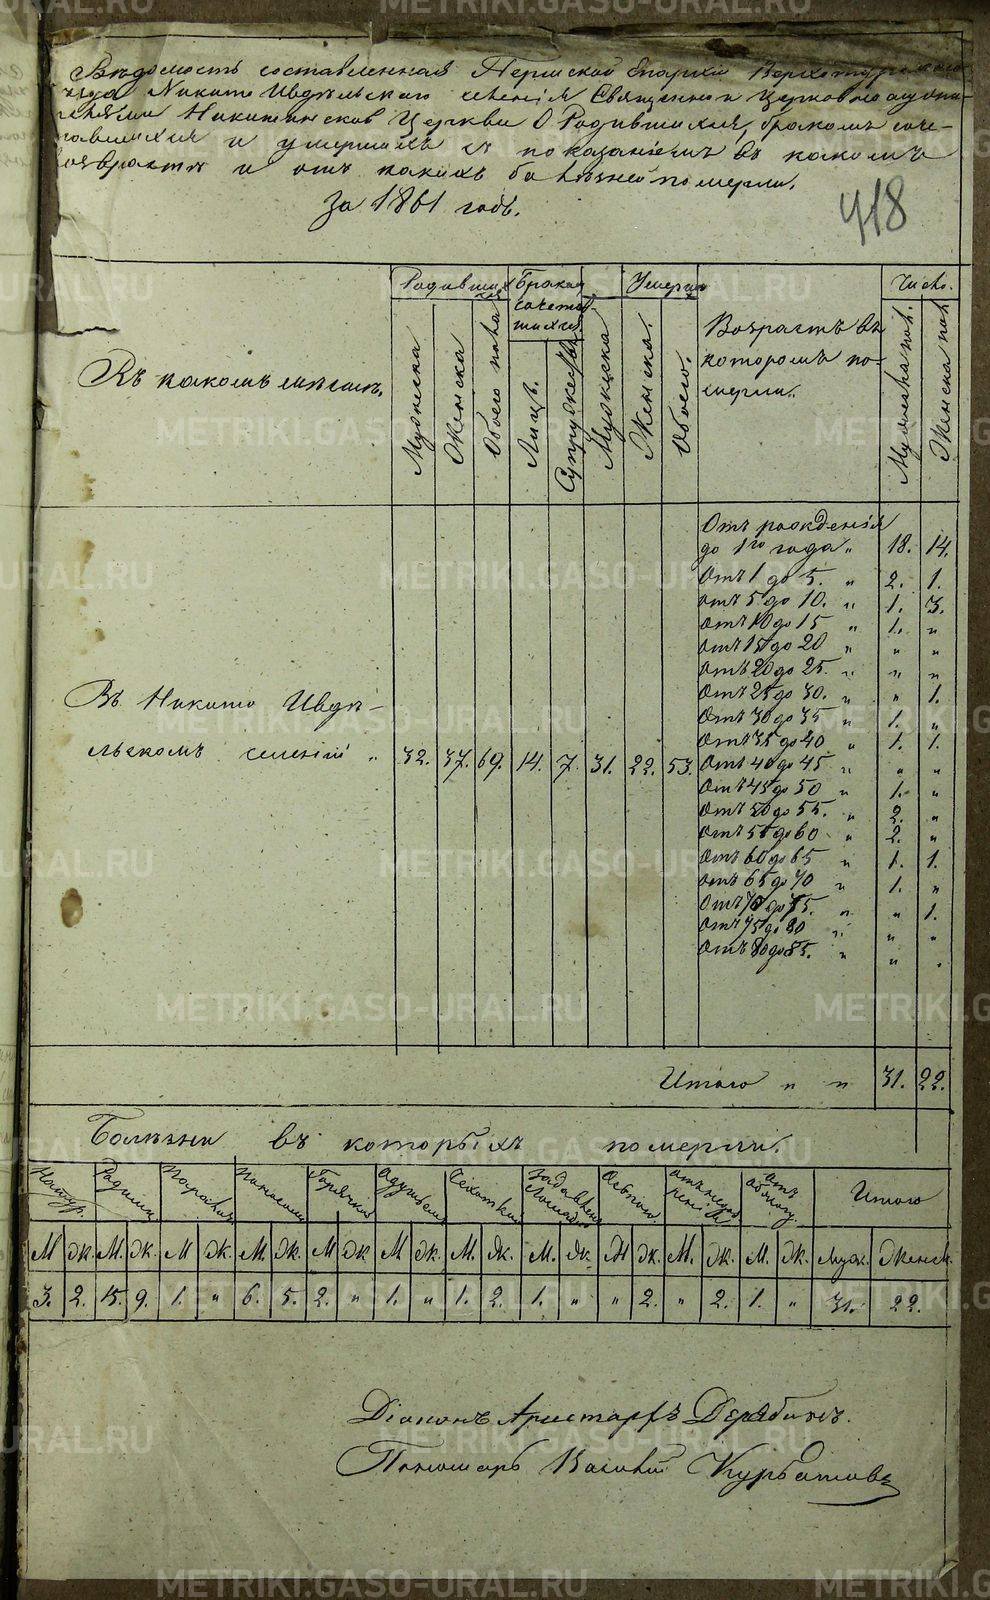 Вѣдомость составленная Пермской Епархіи Верхотурскаго
уѣзда Никито Ивдѣльскаго селенія Священно и Церковнослужи-
телями Никитинской Церкви О Родившихся, бракомъ соче-
тавшихся и умершихъ съ показаніемъ въ какомъ
возрастѣ и отъ какихъ болѣзней померли.
За 1861 годъ.
418
Въ какомъ мѣстѣ.
Родившихся
Мужеска
Женска
Обоего пола
Бракомъ сочетавшихся.
Лицъ.
Супружествъ
Умерш
Мужеска
Женска.
Обоего.
Возрастъ въ
которомъ по-
мерли.
Число.
Мужеска пол.
Женска пол.
Отъ рожденія
до 1го года „ 18. 14.
Отъ 1 до 5. „ 2. 1.
отъ 5 до 10. „ 1. 3.
отъ 10 до 15 „ 1. „
отъ 15 до 20 „ „ „
отъ 20 до 25. „ „ „
Отъ 25 до 30. „ „ 1.
Отъ 30 до 35 „ 1. „
Отъ 35 до 40 „ 1. 1.
Отъ 40 до 45 „ „ „
Отъ 45 до 50 „ 1. „
Отъ 50 до 55. „ 2. „
Отъ 55 до 60 „ 2. „
Отъ 60 до 65 „ 1. 1.
отъ 65 до 70 „ 1. „
Отъ 70 до 75. „ „ 1.
Отъ 75 до 80 „ „ „
Отъ 80 до 85. „ „ „
Въ Никито Ивдѣ-
льскомъ селеніи „ 32. 37. 69. 14. 7. 31. 22. 53.
Итого „ „ 31. 22.
Болѣзни въ которыхъ померли.
Натур. Родимч. Горячкой Чахотки Задавленъ лошадью Оспою. Итого
М Ж. М. Ж. М Ж. М. Ж. М Ж. М Ж. М. Ж. М. Ж. М Ж. М. Ж. М. Ж. Муж. Женск.
3. 2. 15. 9. 1. „ 6. 5. 2. „ 1. „ 1. 2. 1. „ „ 2. „ 2. 1. „ 31. 22.
Діаконъ Аристархъ Дерябинъ.
Пономарь Василій Курбатовъ
METRIKI.GASO-URAL.RU